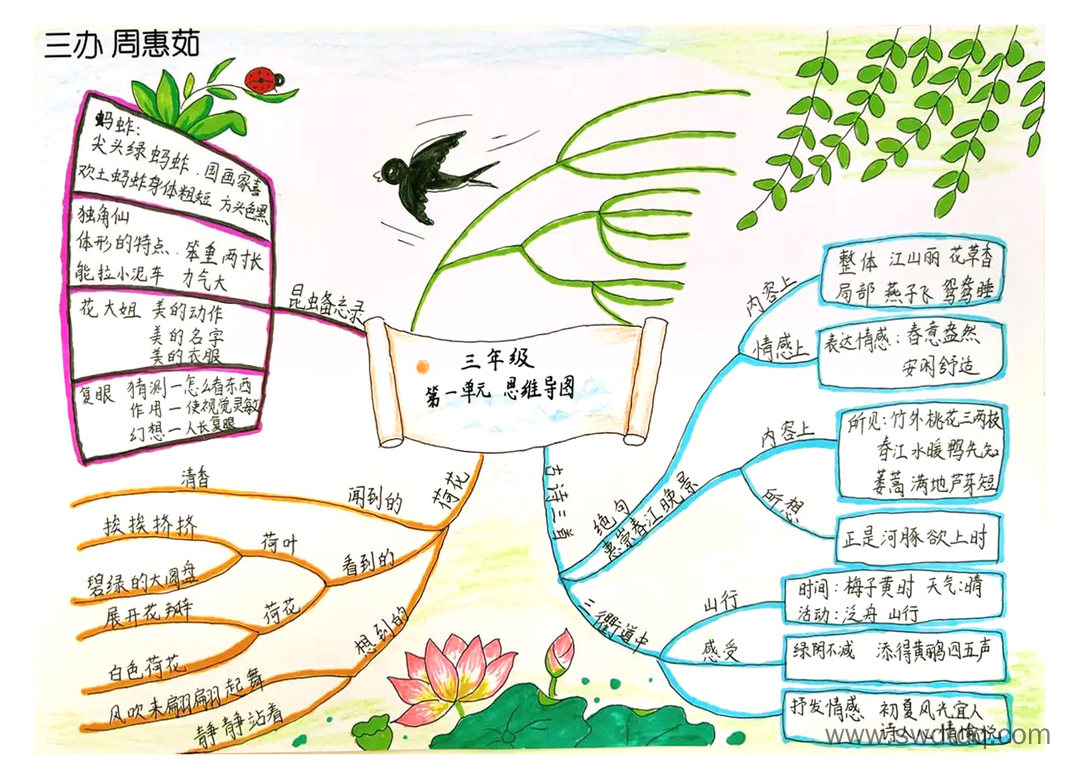 三办 周惠茹
蚂蚱:
尖头绿蚂蚱、国画家喜
欢土蚂蚱身体粗短 方头色黑
独角仙
体形的特点、笨重 两寸长
能拉小泥车 力气大
花大姐 美的动作
美的名字
美的衣服
复眼 猜测一怎么看东西
作用一使视觉灵敏
幻想一人长复眼
昆蟲备忘录
三年级
第一单元 思维导图
荷花
闻到的
清香
看到的
荷叶
挨挨挤挤
碧绿的大圆盘
荷花
展开花瓣
白色荷花
想到的
风吹来翩翩起舞
静静站着
古诗三首
绝句
内容上
整体 江山丽 花草香
局部 燕子飞 鸳鸯睡
情感上
表达情感:春意盎然
安闲舒适
惠崇春江晚景
内容上
所见:竹外桃花三两枝
春江水暖鸭先知
蒌蒿满地芦芽短
所想
正是河豚欲上时
三衢道中
山行
时间:梅子黄时 天气:晴
活动:泛舟 山行
感受
绿阴不减 添得黄鹂四五声
抒发情感 初夏风光宜人
诗人心情愉悦
www.swdtdq.com